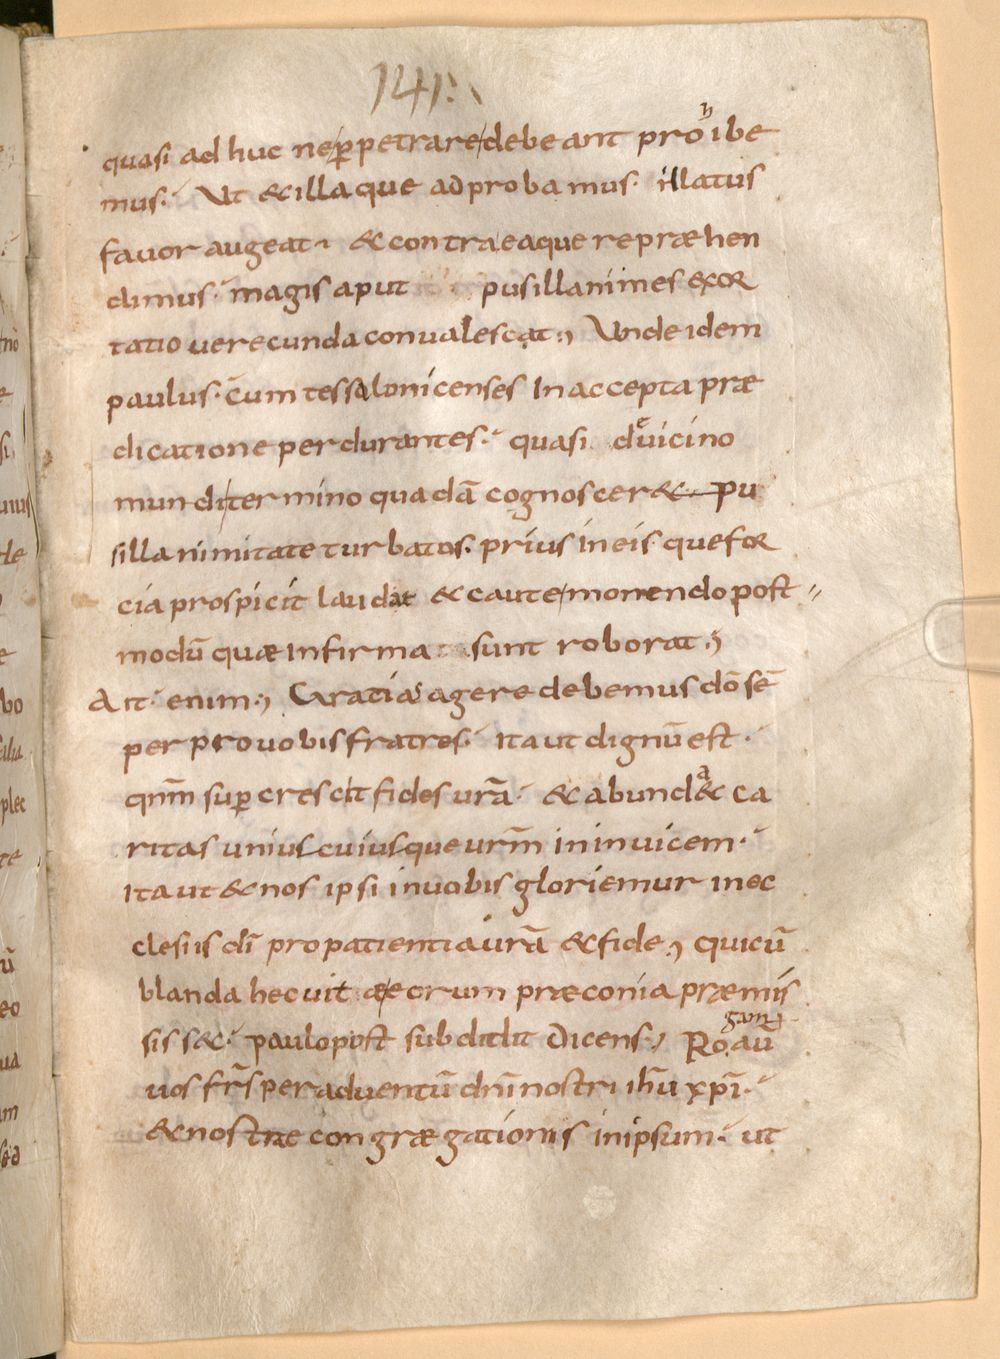 141:
quasi ad huc ne perpetrare debeant prohibe
mus. Ut & illa que adprobamus. illatus
favor augeat & contra ea que repræhen
dimus. magis aput pusillanimes exor
tatio verecunda convalescat; Unde idem
paulus. cum tessalonicenses In accepta præ
dicatione perdurantes. quasi de vicino
mundi termino quadā cognoscer& pu
sillanimitate turbatos. prius in eis que for
cia prospicit laudat & caute monendo post
modū quæ Infirma sunt roborat;
Ait enim; Gratias agere debemus dō sē
per pro vobis fratres. ita ut dignū est.
qnm̄ sup̄ crescit fides vrā. & abundat ca
ritas unius cuiusque vrm̄ in invicem.
Ita ut & nos ipsi in vobis gloriemur in ec
clesiis dī pro patientia vrā & fide; qui cū
blanda hec vite eorum præconia præmis
sis s&. paulo post subdidit dicens; Rogam aū
vos frs̄ per adventū dnī nostri ihū xpī.
& nostræ congrægationis in ipsum. ut